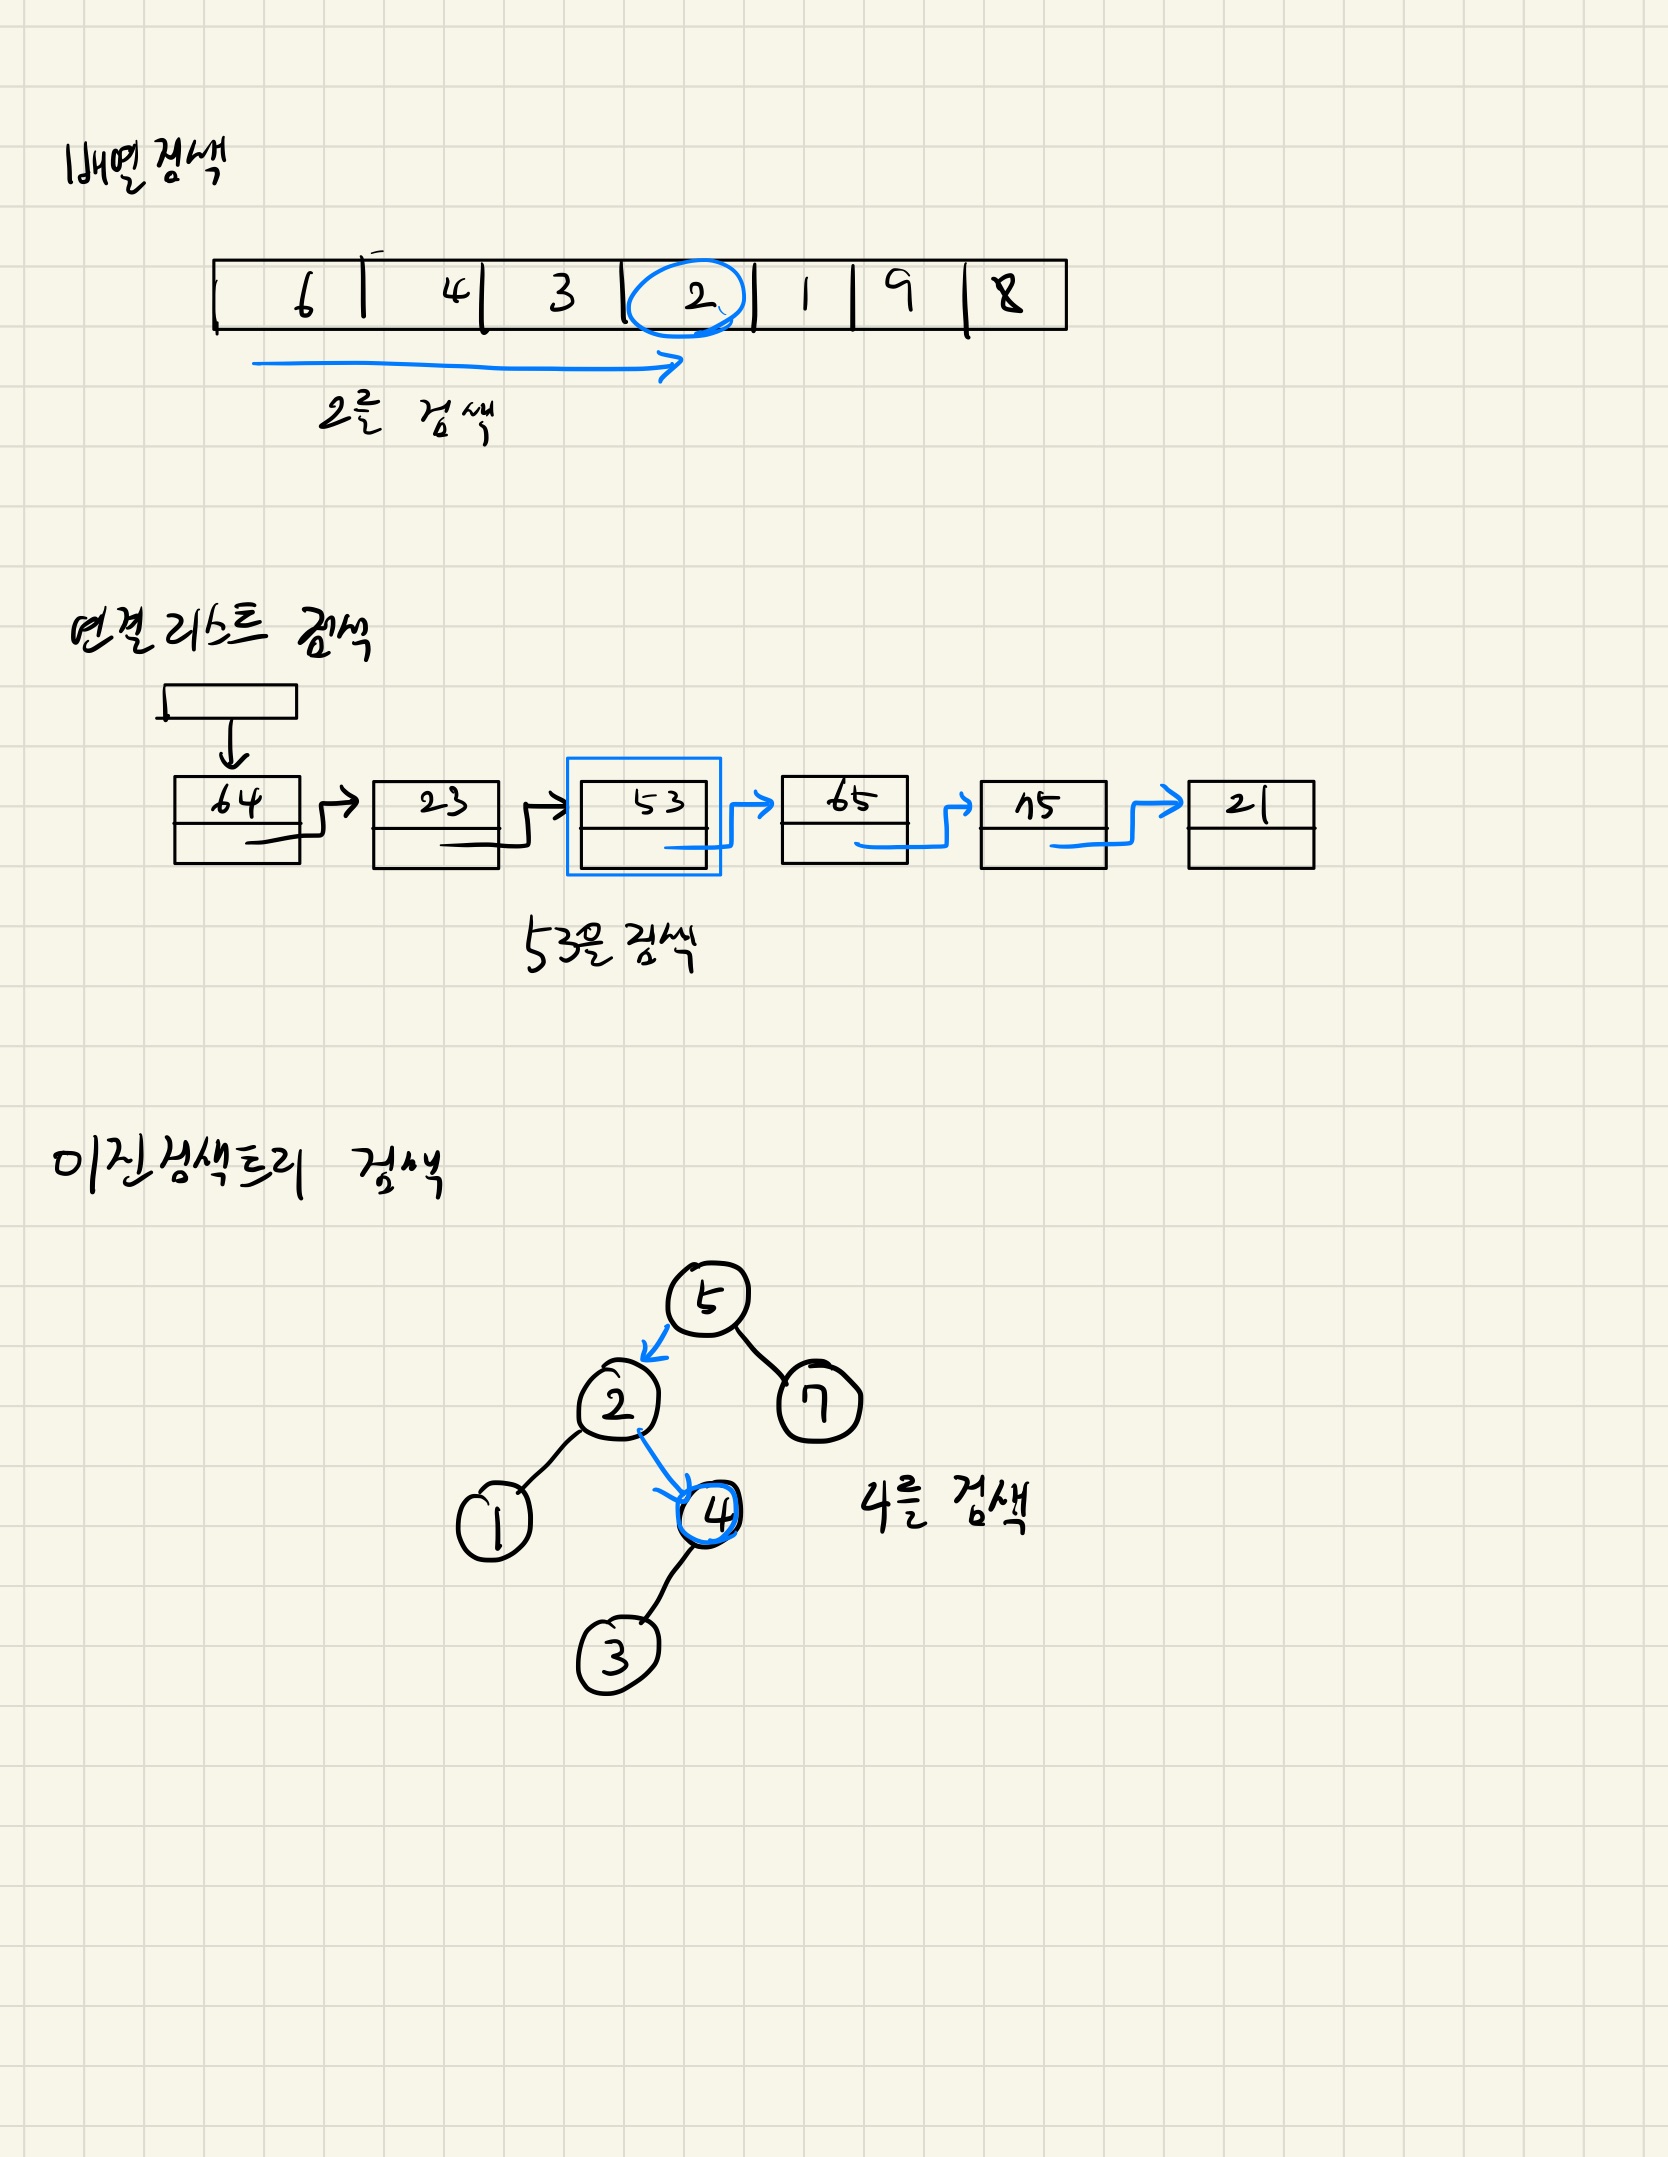 배열 검색
6 4 3 2 1 9 8
2를 검색
연결 리스트 검색
64 23 53 65 75 21
53을 검색
이진검색트리 검색
5
2 7
1 4
4를 검색
3